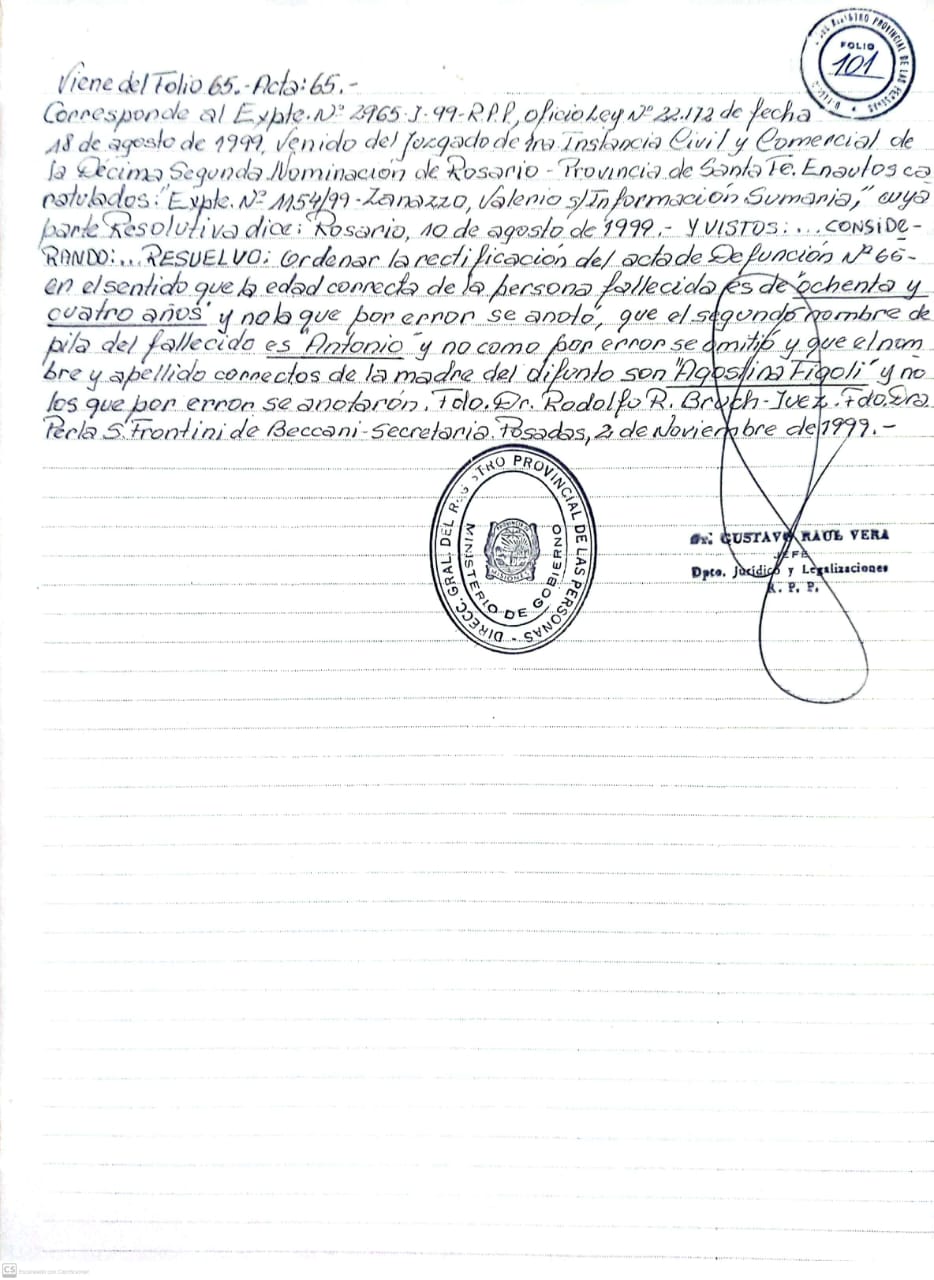 FOLIO
101
Viene del Folio 65.- Acta: 65.-
Corresponde al Expte. Nº 2965-J-99-R.P.P, oficio Ley Nº 22.172 de fecha
18 de agosto de 1999, Venido del Juzgado de 1ra Instancia Civil y Comercial de
la Décima Segunda Nominación de Rosario - Provincia de Santa Fé. En autos ca
ratulados: "Expte. Nº 1154/99 - Zanazzo, Valerio s/Información Sumaria," cuya
parte Resolutiva dice: Rosario, 10 de agosto de 1999.- Y VISTOS: ... CONSIDE-
RANDO:... RESUELVO: Ordenar la rectificación del acta de Defunción Nº 65-
en el sentido que la edad correcta de la persona fallecida es de "ochenta y
cuatro años" y no la que por error se anotó, que el segundo nombre de
pila del fallecido es "Antonio" y no como por error se omitió y que el nom
bre y apellido correctos de la madre del difunto son "Agostina Figoli" y no
los que por error se anotarón. Fdo. Dr. Rodolfo R. Bruch - Juez. Fdo. Dra.
Perla S. Frontini de Beccani - Secretaria. Posadas, 2 de Noviembre de 1999.-
DIRECC. GRAL. DEL REGISTRO PROVINCIAL DE LAS PERSONAS -
MINISTERIO DE GOBIERNO
PROVINCIA
MISIONES
Dr. GUSTAVO RAUL VERA
JEFE
Dpto. Jurídico y Legalizaciones
R. P. P.
CS Escaneado con CamScanner